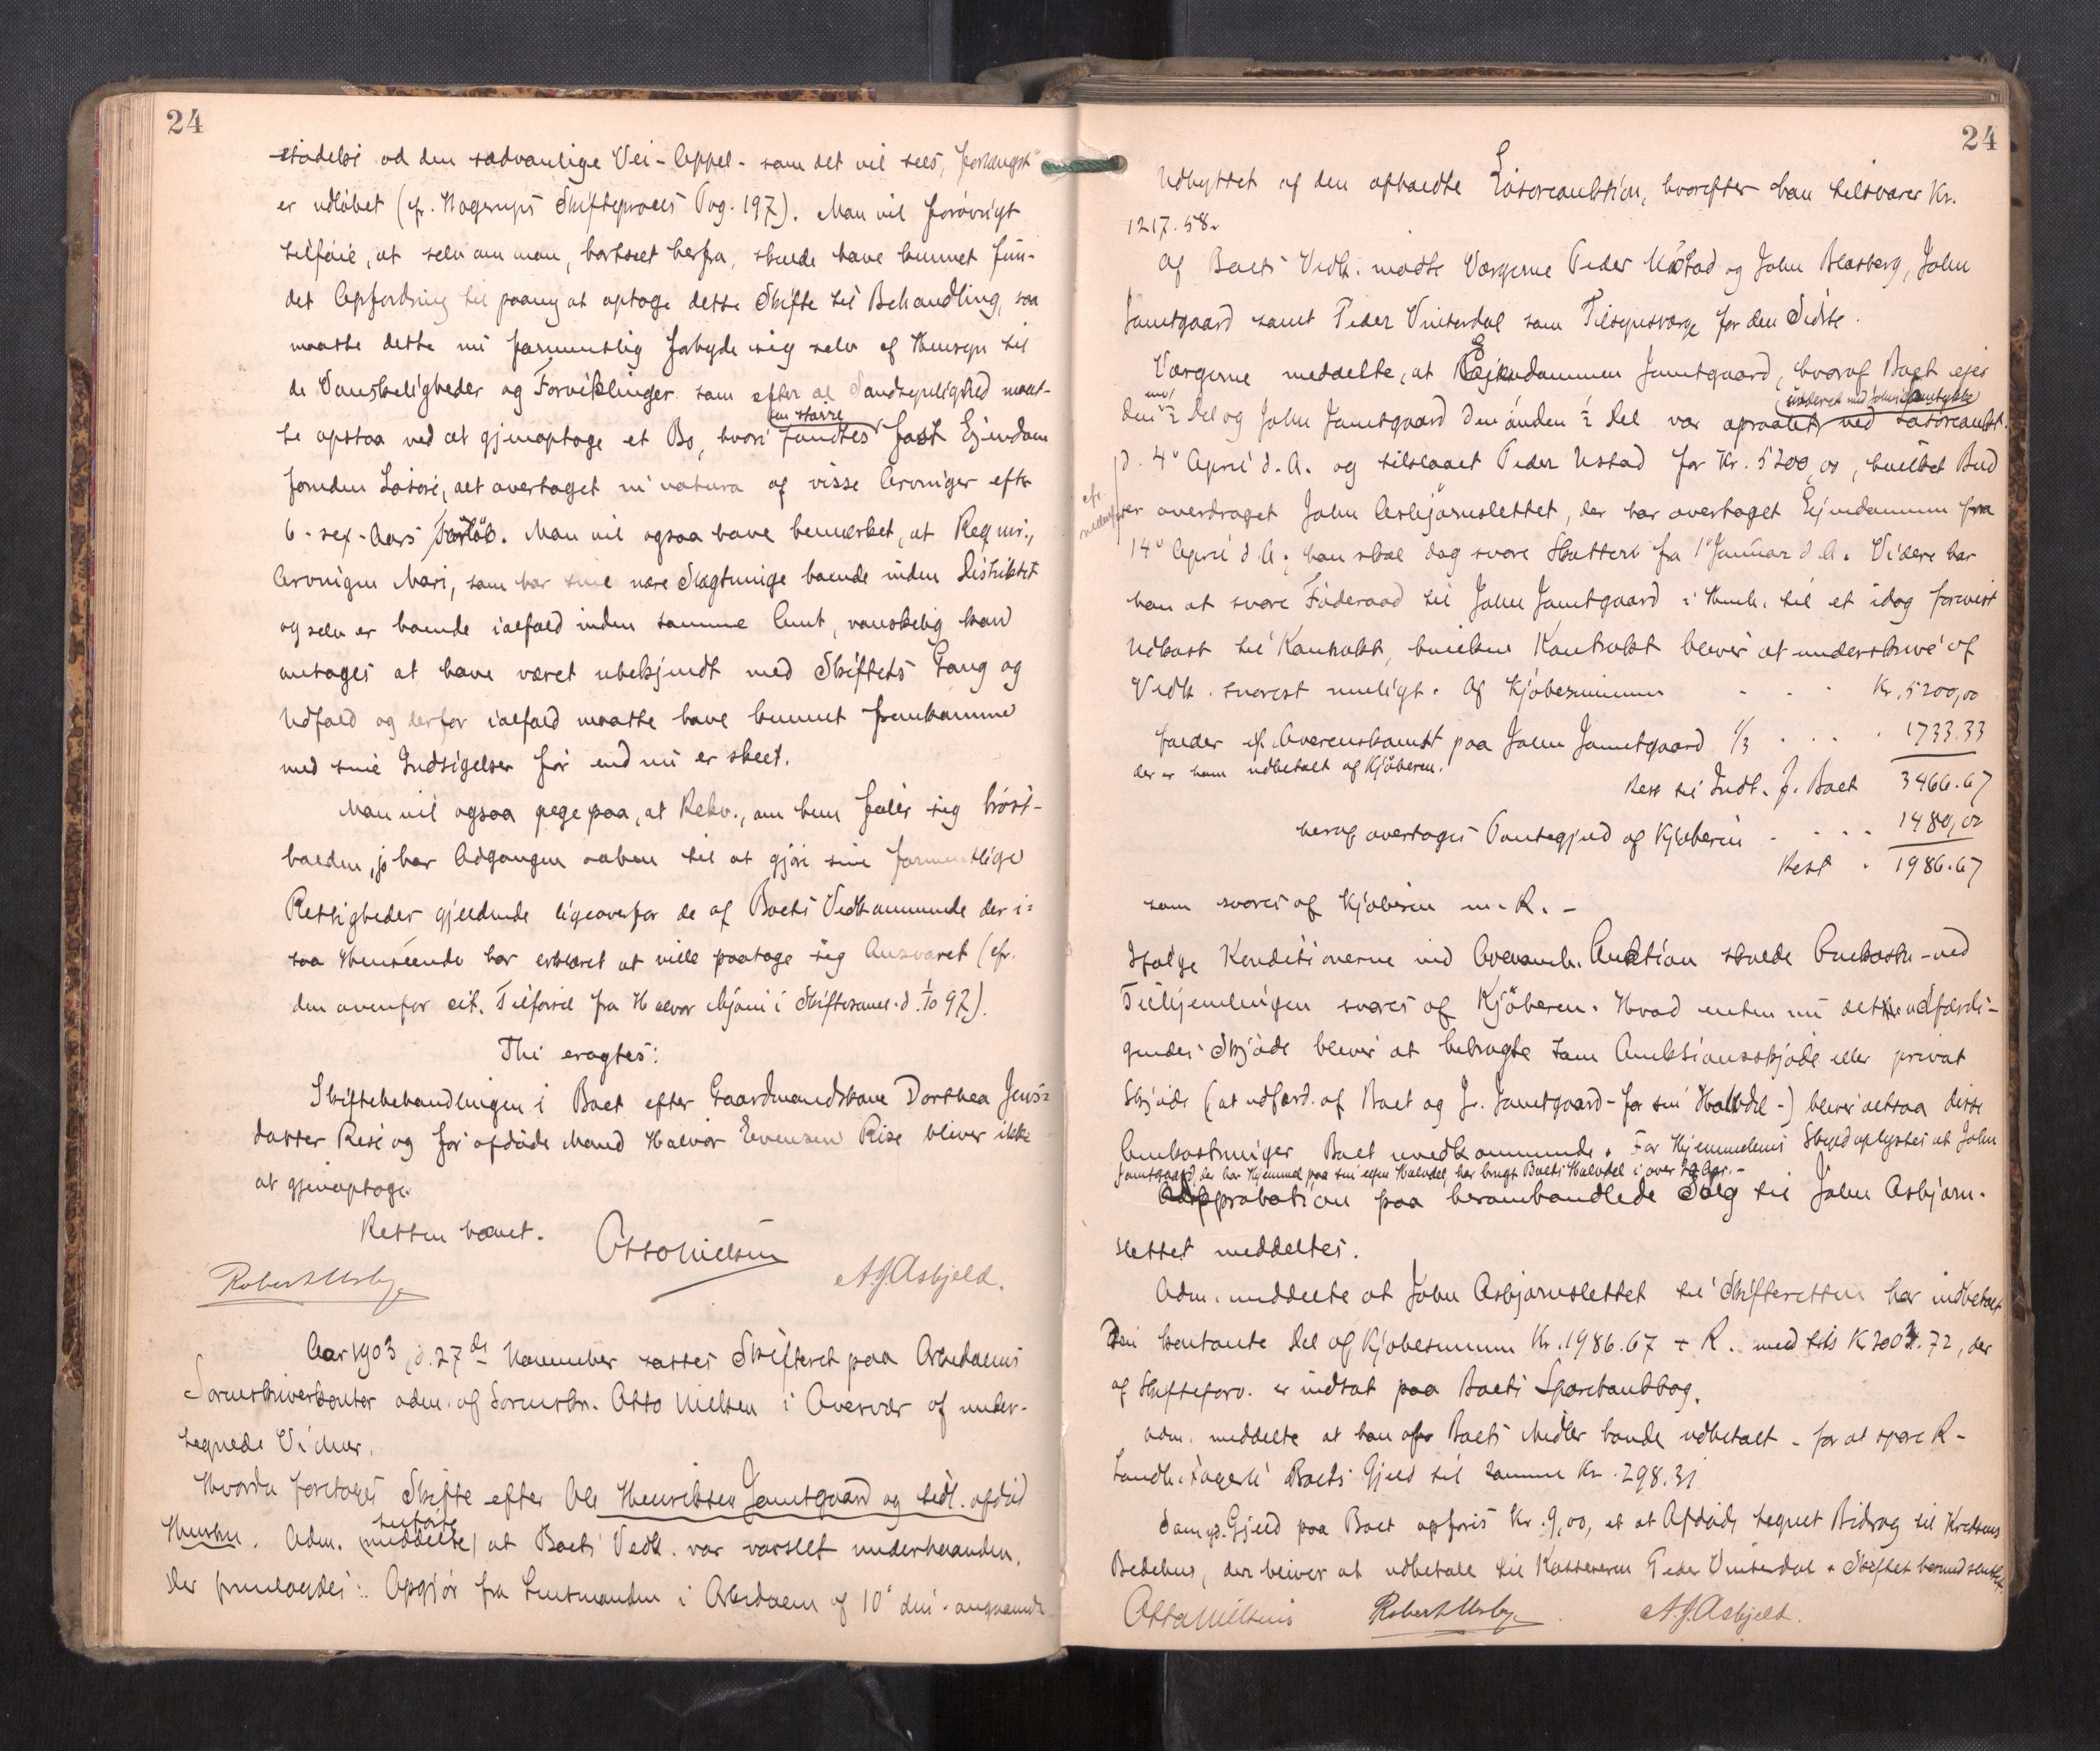 24
stadelse ad den sædvanlige Vei - Appel - som det vil sees, forlængst
er udløbet (cfr. Hagerups Skifteproces Pag. 197). Man vil forøvrigt
tilføie, at selv om man, bortseet herfra, skulde have kunnet fun-
det Opfordring til paany at optage dette Skifte til Behandling, saa
maatte dette nu formentlig forbyde sig selv af Hensyn til
de Vanskeligheder og Forviklinger som efter al Sandsynlighed maat-
en større
te opstaa ved at gjenoptage et Bo, hvori fandtes fast Ejendom
foruden Løsøre, alt overtaget in natura af visse Arvinger efter
6 - sex - Aars Forløb. Man vil ogsaa have bemærket, at Requir.,
Arvingen Mari, som har sine nære Slægtninge boende inden Distriktet
og selv er boende ialfald inden samme Amt, vanskelig kan
antages at have været ubekjendt med Skiftets Gang og
Udfald og derfor ialfald maatte have kunnet fremkomme
med sine Indsigelser før end nu er skeet.
Man vil ogsaa pege paa, at Rekv., om hun føler sig brøst-
holden, jo har Adgangen aaben til at gjøre sine formentlige
Rettigheder gjeldende ligeoverfor de af Boets Vedkommende der i-
saa Henseende har erklæret at ville paatage sig Ansvaret (cfr.
den ovenfor cit. Tilførsel fra Halvor Mjøen i Skiftesaml. d. 1/10 97).
Thi eragtes:
Skiftebehandlingen i Boet efter Gaardmandskone Dorthea Jens-
datter Rise og før afdøde Mand Halvor Evensen Rise bliver ikke
at gjenoptage.
Retten hævet.
Otto Nielsen
Robert Usby
A. J. Asbjeld.
Aar 1903, d. 27de November sattes Skifteret paa Orkedalens
Sorenskriverkontor adm. af Sorenskr. Otto Nielsen i Overvær af under-
tegnede Vidner.
Hvorda foretoges Skifte efter Ole Henriksen Jamtgaard og tidl. afdød
anførte
Hustru. Adm. (meddelte) at Boets Vedk. var varslet underhaanden.
Der fremlagdes: Opgjør fra Lensmanden i Orkedalen af 10' ds. angaaende
24
Udbyttet af den afholdte Løsøreauktion, hvorefter han tilsvarer Kr.
1217.58.
Af Boets Vedk. mødte Værgerne Peder Ustad og John Blasberg, John
Jamtgaard samt Peder Vinterdal som Tilsynsværge for den Sidste.
Værgerne meddelte, at Ejendommen Jamtgaard, hvoraf Boet ejer
ene
den ½ Del og John Jamtgaard den anden ½ Del var opraabt ved Løsøreaukt.
d. 4' April d. A. og tilslaaet Peder Ustad for Kr. 5200,00, hvilket Bud
cfr. nedenfor
er overdraget John Asbjørnslettet, der har overtaget Ejendommen fra
14' April d. A.; han skal dog svare Skatterne fra 1' Januar d. A. Videre har
han at svare Føderaad til John Jamtgaard i Henh. til et idag forevist
Udkast til Kontrakt, hvilken Kontrakt bliver at underskrive af
Vedk. snarest muligt. Af Kjøbesummen - - - Kr. 5200,00
falder efter Overenskomst paa John Jamtgaard 1/3 . . . . 1733.33
der er ham udbetalt af Kjøberen.
Rest til Indt. f. Boet 3466.67
heraf overtages Pantegjeld af Kjøberen . . . . 1480,00
Rest . 1986.67
som svares af Kjøberen m. R. -
Ifølge Konditionerne ved Ovennevnte Auktion skulde Omkostn. ved
Tilhjemlingen svares af Kjøberen. Hvad enten nu det udfærdi-
gendes Skjøde bliver at betragte som Auktionsskjøde eller privat
Skjøde (at udfærd. af Boet og J. Jamtgaard - for sin Halvdel -) bliver altsaa disse
Omkostninger Boet uvedkommende. For Hjemmelens Skyld oplystes at John
Jamtgaard, der har Hjemmel paa sin egen Halvdel, har brugt Boets Halvdel i over 20 Aar. -
Approbation paa heromhandlede Salg til John Asbjørn-
slettet meddeltes.
Adm. meddelte at John Asbjørnslettet til Skifteretten har indbetalt
den kontante Del af Kjøbesummen Kr. 1986.67 + R. med tils Kr 2003.72, der
af Skifteforv. er indsat paa Boets Sparebankbog.
Adm. meddelte at han af Boets Midler havde udbetalt - for at spare R -
Landh. Fagerli Boets Gjeld til samme Kr. 298.31
Som yd. Gjeld paa Boet opføres Kr. 9,00, et at Afdøde tegnet Bidrag til Kredsens
Bedehus, der bliver at udbetale til Kassereren Peder Vinterdal. Skiftet hermed sluttet.
Otto Nielsen
Robert Usby
A. J. Asbjeld.